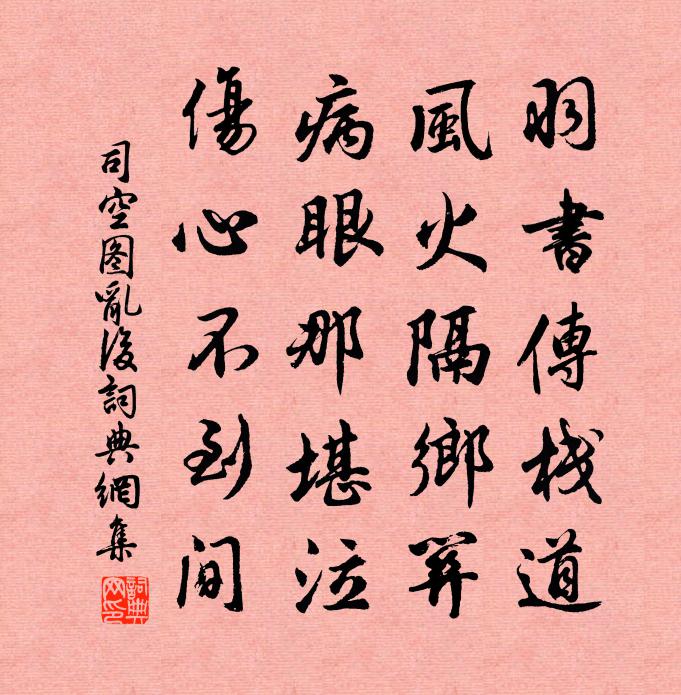 羽書傳栈道
風火隔鄉關
病眼那堪泣
傷心不到間
司空图亂後詞典網集
詞典网印